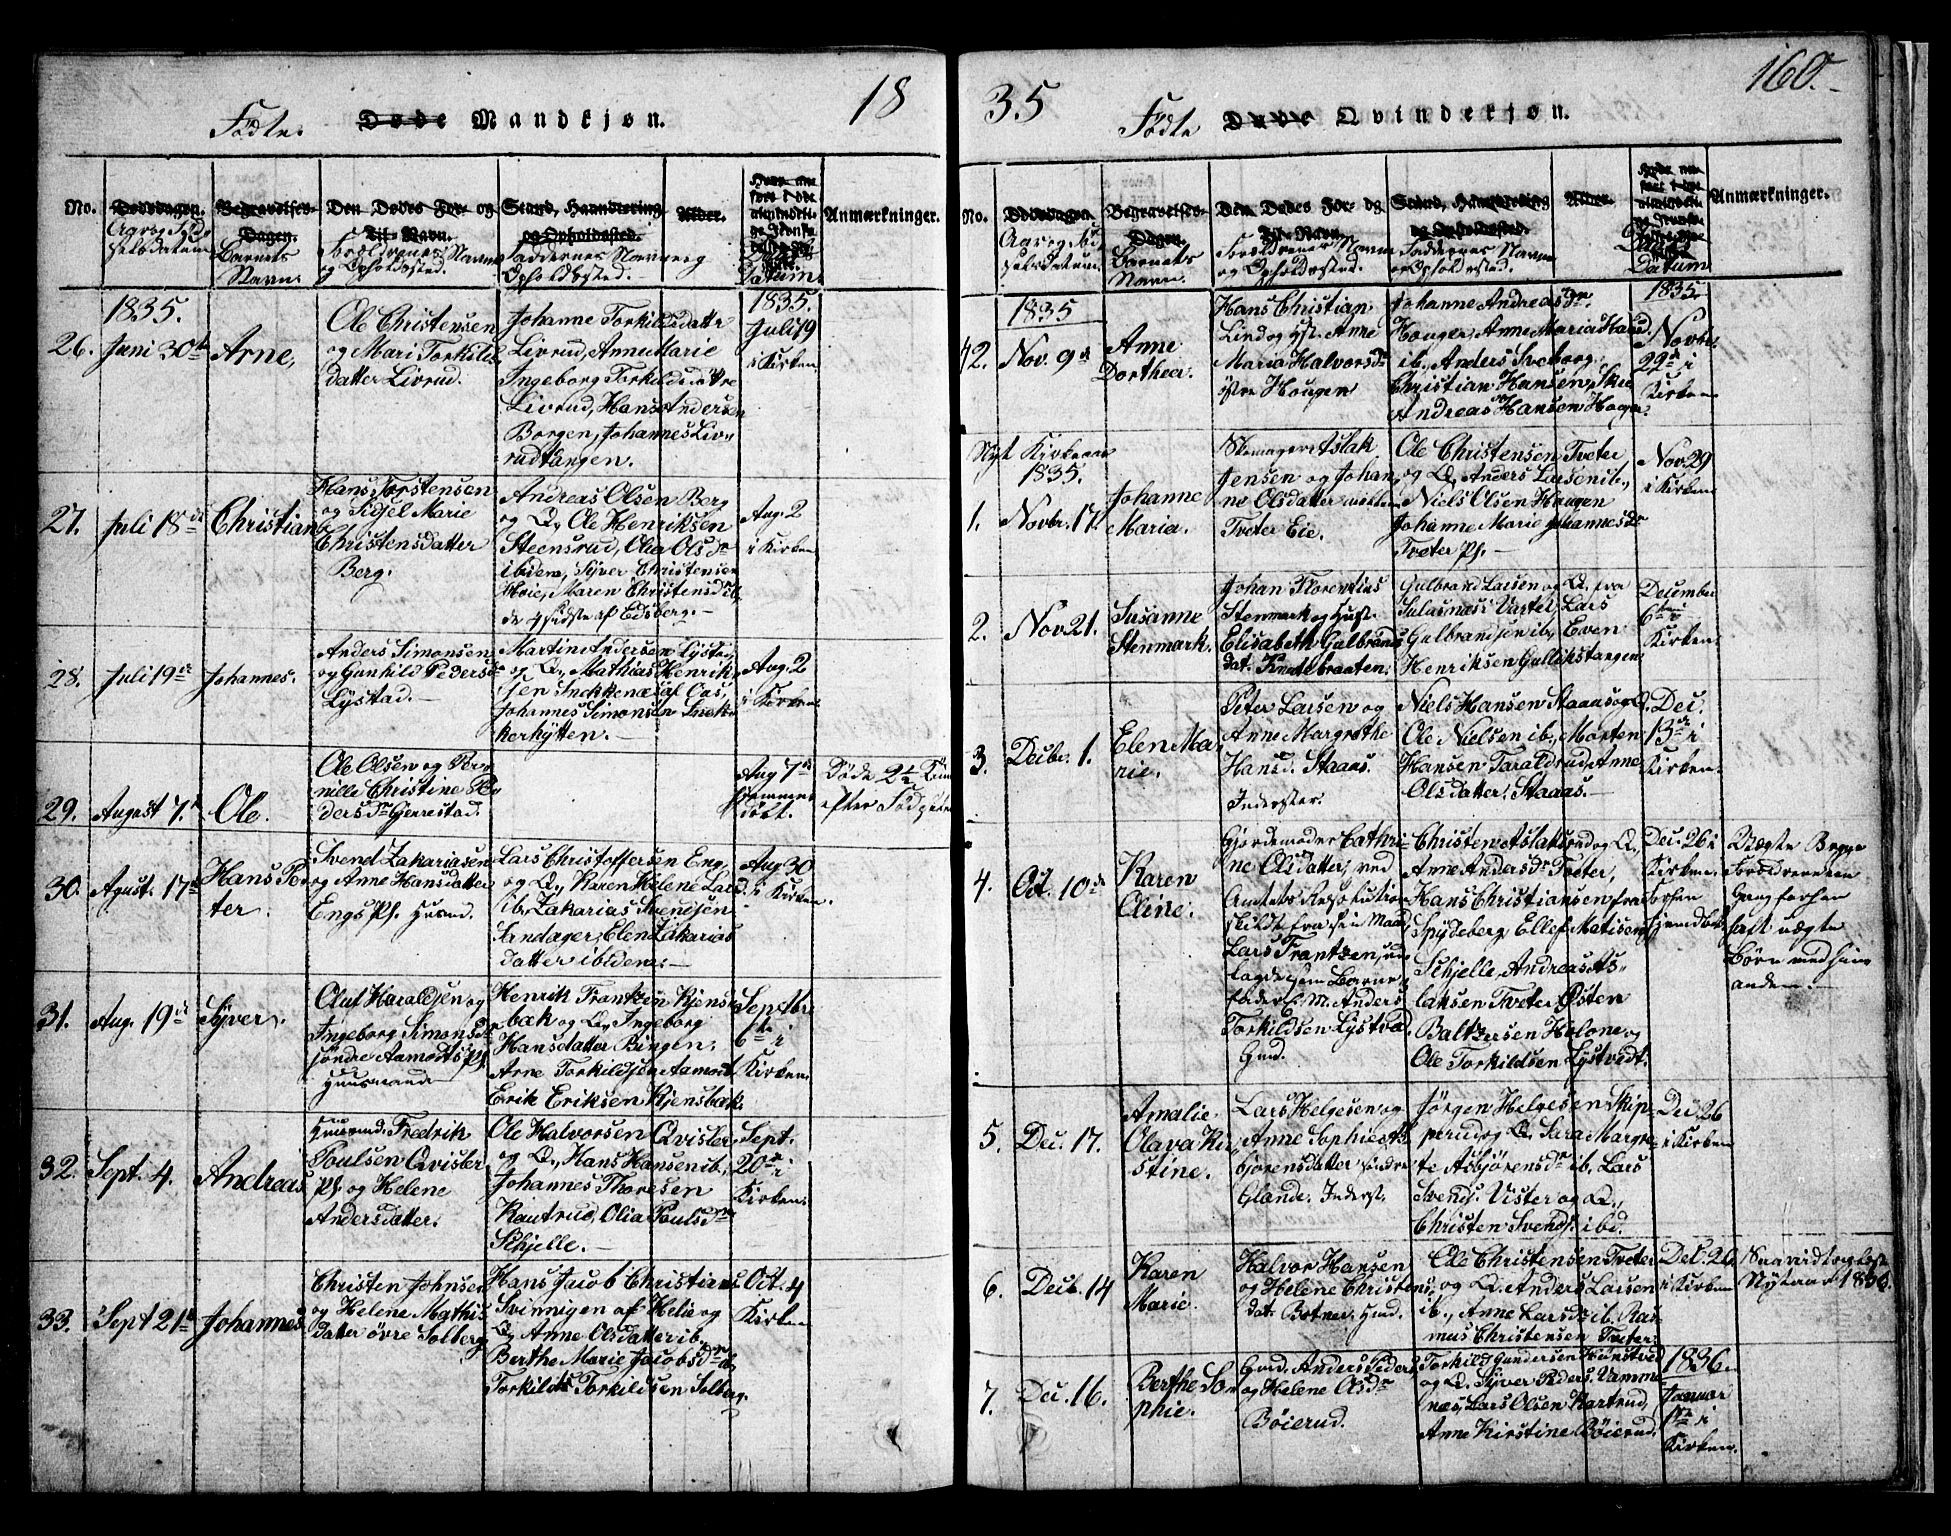 18
Fødte
Døde Mandkjøn.
No.
Dødsdagen.
Aar og Fød-
selsdatum
Begravelses-
Dagen.
Barnets
Navn.
Den Dødes For- og
Til-Navn.
Forældrenes Navn
og Opholdssted.
Stand, Haandtering
og Opholdssted.
Faddernes Navn og
Opholdssted.
Alder.
Datum
Anmærkninger.
1835.
26. Juni 30te
Arne,
Ole Christensen
og Mari Torkilds
datter Livrud.
Johanne Torkildsdatter
Livrud, Anne Marie
Ingeborg Torkildsdøttre
Livrud, Hans Andersen
Borgen, Johannes Liv-
rudtangen.
1835.
Juli 19
i Kirken
27. Juli 18de
Christian
Hans Torstensen
og Sidsel Marie
Christensdatter
Berg.
Andreas Olsen Berg
og Q., Ole Henriksen
Steensrud, Olea Olsdr
ibidem, Syver Christensen
Hoie, Maren Christensdr ib.
de 4 sidste af Edsberg.
Aug. 2
i Kirken
28. Juli 19de
Johannes.
Anders Simonsen
og Gunhild Pedersd.
Lystad.
Martin Andersen Lystad
og Q., Mathias Henrik-
sen Snekkenæs af Aas,
Johannes Simonsen Snek-
kerhytten.
Aug. 2
i Kirken
29. August 7.
Ole.
Ole Olsen og Per-
nille Christine Pe-
dersdr Gjennestad.
Aug 7de
hjemme
døbt.
Døde 2½ Time
efter Fødselen
30. Agust. 17de
Hans Pe-
ter.
Svend Zakariasen
og Anne Hansdatter
Engs Pl. Husmd.
Lars Christoffersen Eng
og Q., Karen Helene Larsd.
ib., Zakarias Svendsen
Sandager, Elen Zakarias
datter ibidem.
Aug 30
i Kirken.
31. Aug. 19de
Syver.
Oluf Haraldsen og
Ingeborg Simonsdr
søndre Aamodts Pl.
Huusmand
Henrik Frantzen Kjens-
bak og Q., Ingeborg
Hansdatter Bingen,
Arne Torkildsen Aamodt
Erik Eriksen Kjensbak.
Septbr
6te i
Kirken.
32. Sept. 4.
Andreas
Huusmd. Fredrik
Poulsen Qvisler
Pl. og Helene
Andersdatter.
Ole Halvorsen Qvisler
og Q., Hans Hansen ib.,
Johannes Thoresen
Kautrud, Olia Poulsdr
Schjelle.
Sept.
20de i
Kirken.
33. Sept 21de
Johannes
Christen Johnsen
og Helene Mathis
datter øvre Solberg
Hans Jacob Christians.
Svinnigen af Helie og
Q., Anne Olsdatter ib.,
Berthe Marie Jacobsdr ib.
Torkild Torkildsen Solberg.
Oct. 4
Kirken
35
160.
Fødte
Døde Qvindekjøn.
No.
Dødsdagen
Aar og Fød-
selsdatum.
Begravelses-
Dagen.
Barnets
Navn.
Den Dødes For- og
Til-Navn.
Forældrenes Navn
og Opholdssted.
Stand, Haandtering
og Opholdssted.
Faddernes Navn
og Opholdssted.
Alder.
Datum
Anmærkninger.
1835
42. Nov. 9de
Anne
Dorthea.
Hans Christian
Lind og Hst. Anne
Maria Halvorsdr
østre Hougen
Johanne Andreasdr.
Houger, Anne Maria Hansd.
ib., Anders Sveborg,
Christian Hansen Skie
Andreas Hansen Hoger.
1835.
Novbr
22de i
Kirken
Nyt Kirkeaar
1835.
1. Novbr. 17.
Johanne
Maria.
Skomager Atslak
Jensen og Johan-
ne Olsdatter mellem
Tveter Eie.
Ole Christensen Tveter
og Q., Anders Larsen ib.,
Niels Olsen Haugen
Johanne Marie Johannesdr
Tveter Pl.
Nov. 29
i Kirken
2. Nov 21.
Susanne
Stenmark.
Johan Florentias
Stenmark og Hust.
Elisabeth Gulbrands
dat. Knatebraaten.
Gulbrand Larsen og Q. fra
Sulasnæs i Vaaler, Lars
Gulbrandsen ib., Even
Henriksen Gullikstangen
December
6te i
Kirken.
3. Decbr. 1.
Elen Ma-
rie.
Peter Larsen og
Anne Margrethe
Hansd. Staaas.
Inderster.
Niels Hansen Staaas og Q.
Ole Nielsen ib., Morten
Hansen Taraldrud, Anne
Olsdatter Staaas.
Dec.
13de i
Kirken.
4. Oct. 10de
Karen
Oline.
Gjordemoder Cathri-
ne Olsdatter, ved
Amtets Resolution
skildt fra sin Mand
Lars Frantzen, ud-
lagde som Barne-
fader E. M. Anders
Torkildsen Lystvad
Gmd.
Christen Atslaksrud og Q,
Anne Andersdr Tveter,
Hans Christiansen fra
Spydeberg, Ellef Matisen
Schjelle, Andreas Ats-
laksen Tveter, Østen
Baltzersen Holone og
Ole Torkildsen Lystvedt.
Dec. 26 i
Kirken.
Forhen
hjemdøbt.
Uægte. Begge
Forældrenes
Gang forhen
havt uægte
Børn med hin-
anden.
5. Dec. 17.
Amalie
Olava Kir-
stine.
Lars Helgesen og
Anne Sophie As-
bjørensdatter søndre
Glande. Inderst.
Jørgen Helgesen Skip-
perud og Q. Sara Margre-
te Asbjørensdr ib. Lars
Svends. Vister og Q.,
Christen Svends. ibd.
Dec 26
i Kirken
6. Decb. 14
Karen
Marie.
Halvor Hansen
og Helene Christens
dat. Botner, Hmd.
Ole Christensen Tveter
og Q. Anders Larsen
ib., Anne Larsdr ib. Ras-
mus Christensen Tveter.
Dec. 26
i Kirken
Nytaar 1836.
7. Dec. 16.
Berthe So-
phie.
Gmd. Anders Peders.
og Helene Olsdr
Bøierud.
Torkild Gundersen Frønsvad
og Q. Syver Peders. Vamme-
næs, Lars Olsen Kartrud,
Anne Kirstine Bøierud.
1836.
Januar
1ste i
Kirken.